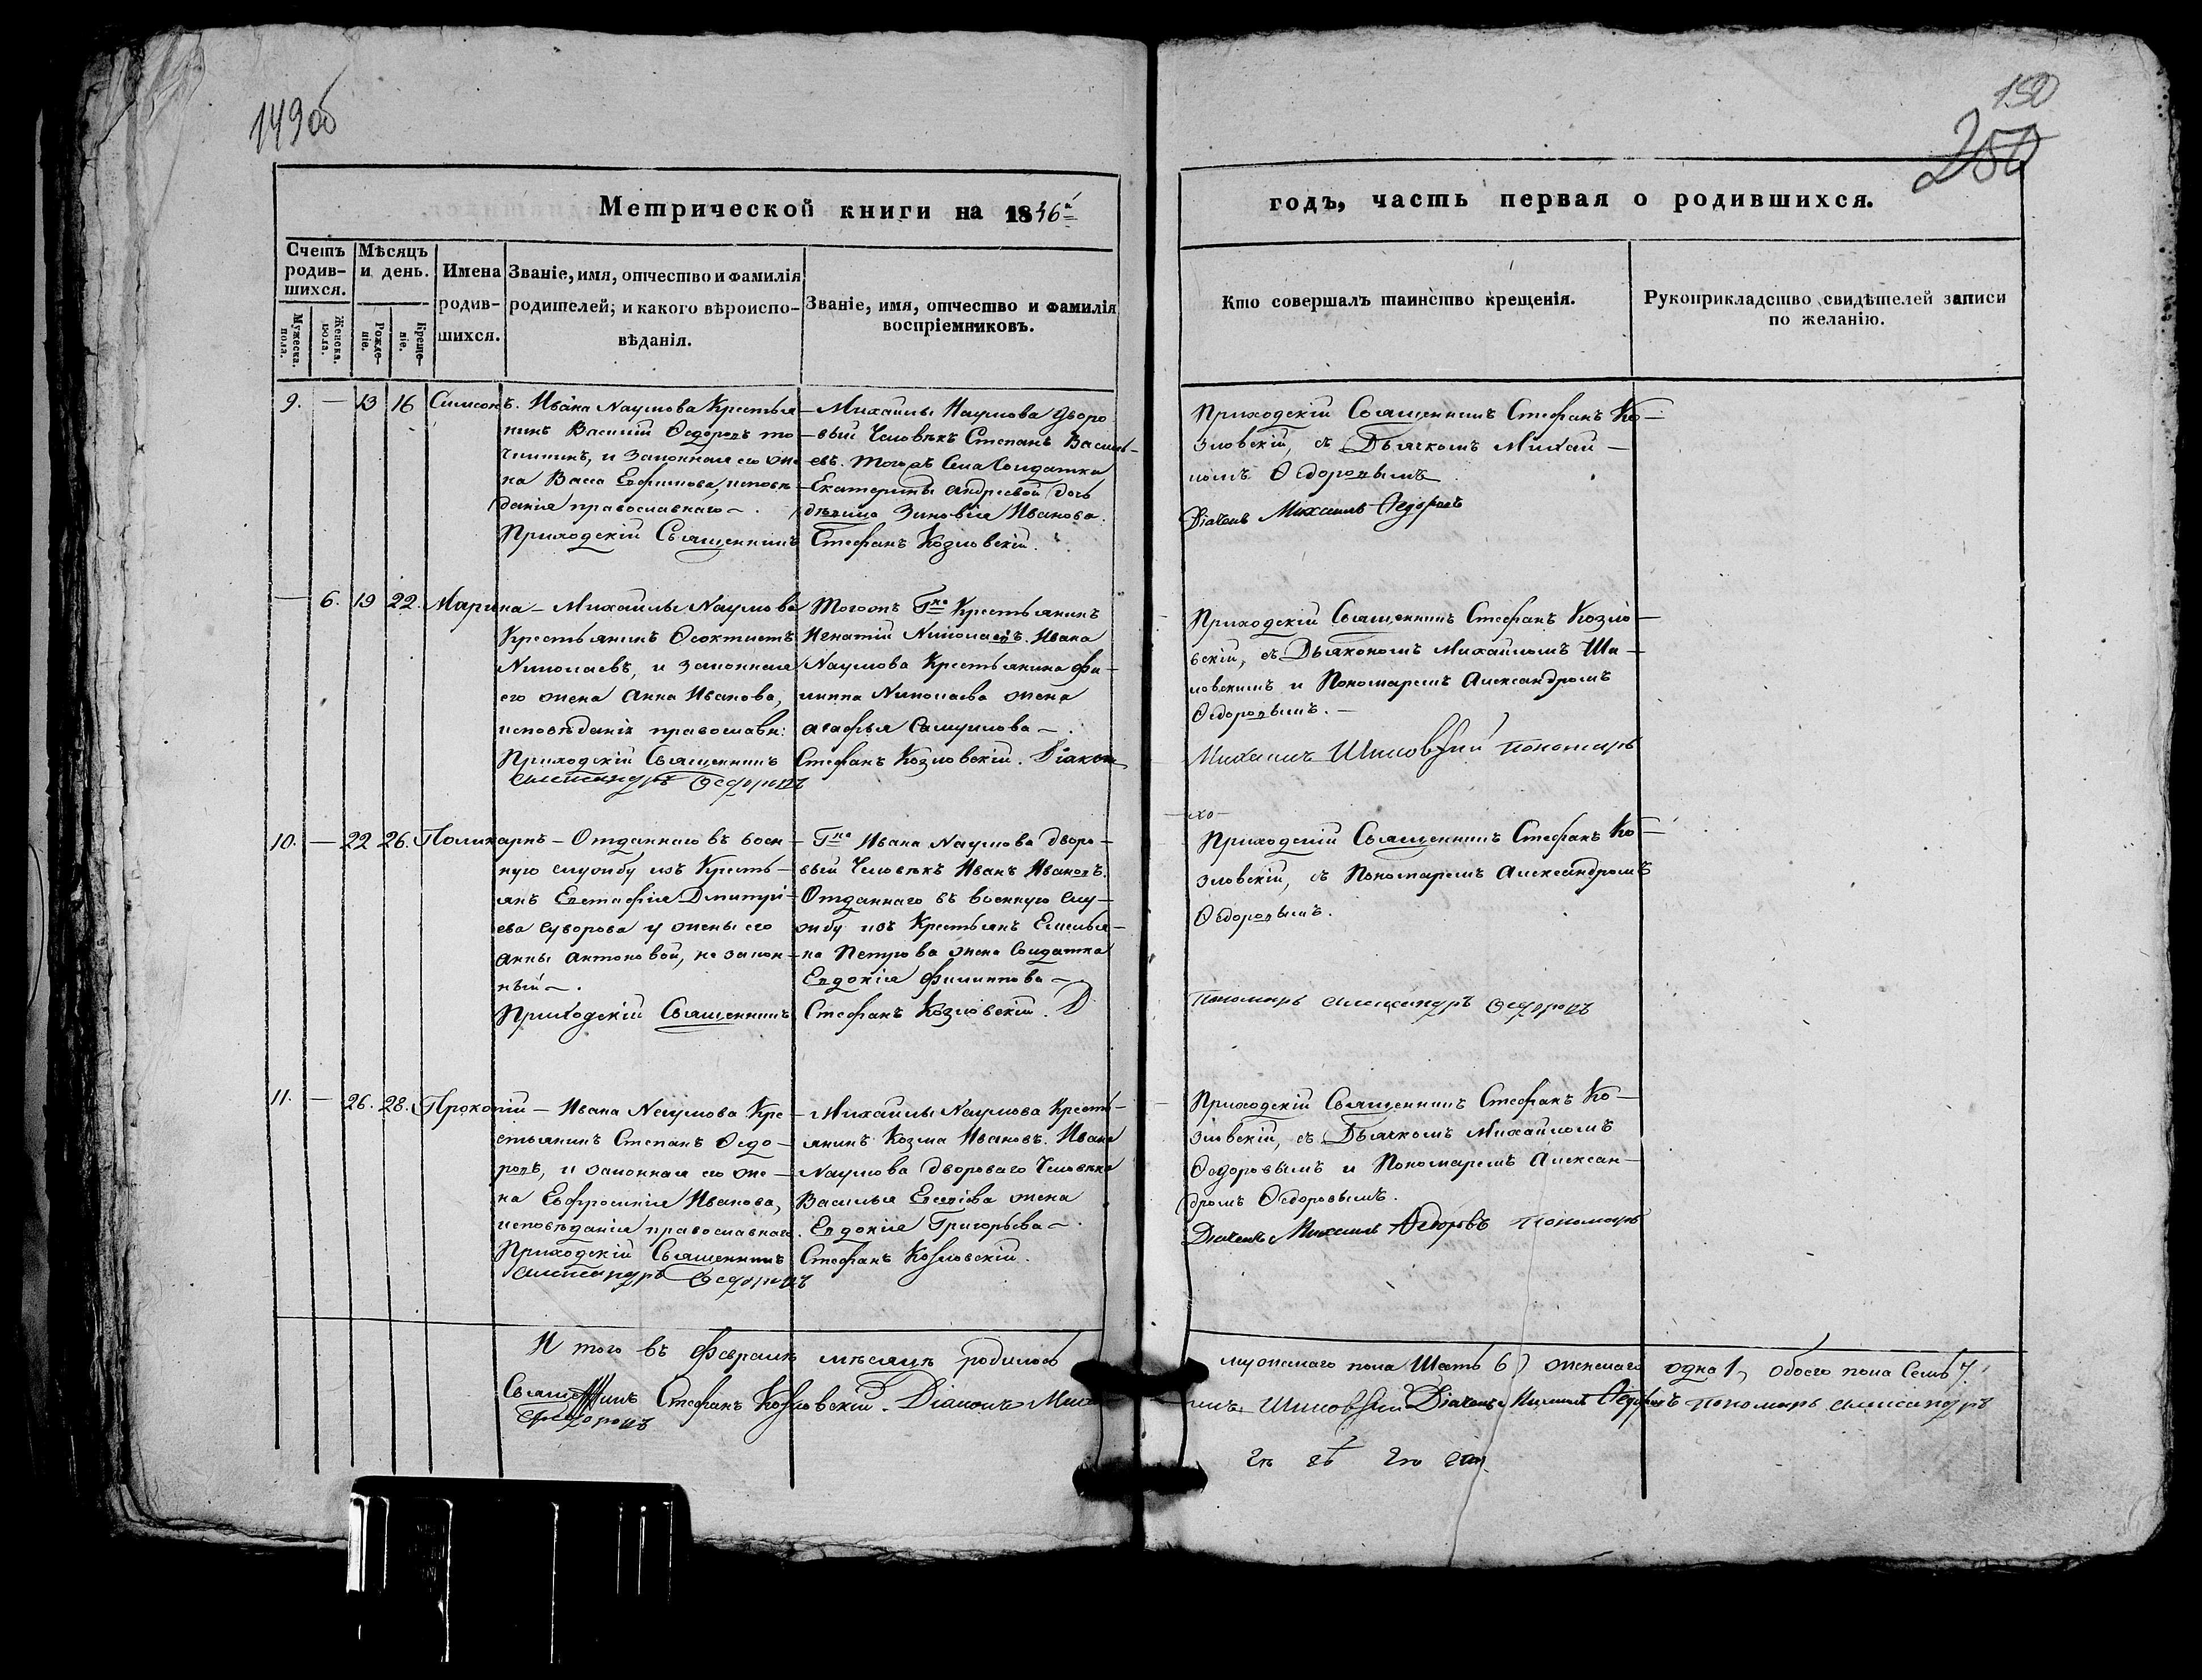 149об
150
250
Метрической книги на 1846й
годъ, часть первая о родившихся.
Счетъ родив-шихся.
Мужеска. пола.
Женска. пола.
Мѣсяцъ и день.
Рожде-ніе.
Креще-ніе.
Имена родив-шихся.
Званіе, имя, отчество и фамилія
родителей; и какого вѣроиспо-
вѣданія.
Званіе, имя, отчество и фамилія
воспріемниковъ.
Кто совершалъ таинство крещенія.
Рукоприкладство свидѣтелей записи
по желанію.
9. — 13 16 Симеонъ. Ивана Наумова Крестья
нинъ Василий Ѳедоровъ
и законная его же
на Васа Ефимова, исповѣ
данія православнаго.
Михайлы Наумова Дворо
вый Человѣкъ Степанъ Василь-
евъ. Тогожъ Села Солдатки
Екатерины Андреевой дочь
дѣвица Зиновія Иванова.
Приходскій Священникъ Стефанъ Козловскій.
Приходскій Священникъ Стефанъ Ко-
зловскій, съ Дьячкомъ Михай-
ломъ Ѳедоровымъ
Діачекъ Михаилъ Ѳедоровъ
— 6. 19 22. Марина — Михайлы Наумова
Крестьянинъ Ѳеоктистъ
Николаевъ, и законная
его жена Анна Иванова,
исповѣданія православн:
Тогожъ Гна Крестьянинъ
Игнатій Николаевъ. Ивана
Наумова Крестьянина Фи-
липпа Николаева жена
Агафья Самуилова.
Приходскій Священникъ Стефанъ Козловскій. Діаконъ
Александръ Ѳедоровъ
Приходскій Священникъ Стефанъ Козло-
вскій, съ Дьякономъ Михайломъ Ши-
ловскимъ и Пономаремъ Александромъ
Ѳедоровымъ.
Михаилъ Шиловскій Пономарь
10. — 22 26. Поликарпъ — Отданнаго въ воен
ную службу изъ Кресть-
янъ Евстафія Дмитрі-
ева Суворова у жены его
Анны Антоновой, незакон-
ный.
Гна Ивана Наумова дворо-
вый Человѣкъ Иванъ Ивановъ.
Отданнаго въ военную слу-
жбу изъ Крестьянъ Емелья-
на Петрова жена Солдатка
Евдокія Филиппова
Приходскій Священникъ Стефанъ Козловскій. Д
хо
Приходскій Священникъ Стефанъ Ко-
зловскій, съ Пономаремъ Александромъ
Ѳедоровымъ.
Пономарь Александръ Ѳедоровъ
11. — 26. 28. Прокопій — Ивана Наумова Кре
стьянинъ Степанъ Ѳедо-
ровъ, и законная его же-
на Евфросинія Иванова,
исповѣданія православнаго.
Михайлы Наумова Кресть-
янинъ Козма Ивановъ. Ивана
Наумова дворового Человѣка
Василья жена
Евдокія Григорьева.
Приходскій Священникъ Стефанъ Козловскій.
Александръ Ѳедоровъ
Приходскій Священникъ Стефанъ Ко-
зловскій, съ Дьячкомъ Михайломъ
Ѳедоровымъ и Пономаремъ Алексан-
дромъ Ѳедоровымъ.
Діачекъ Михаилъ Ѳедоровъ Пономарь
И того въ Февралѣ мѣсяцѣ родилось мужескаго пола Шесть 6, женскаго одна 1, обоего пола Семь 7.
Священникъ Стефанъ Козловскій. Діаконъ Михаилъ Шиловскій Діачекъ Михаилъ Ѳедоровъ Пономарь Александръ
Ѳедоровъ